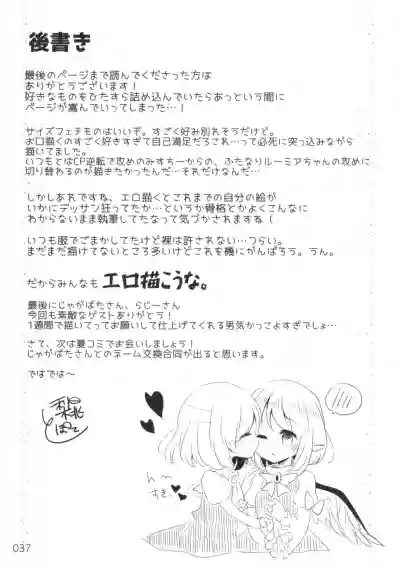 後書き
最後のページまで読んでくださった方は
ありがとうございます！
好きなものをひたすら詰め込んでいたらあっという間に
ページが嵩んでいってしまった…！
サイズフェチものはいいぞ。すごく好み別れそうだけど。
お口描くのすごく好きすぎて自己満足だろこれ…って必死に突っ込みながら
描いてました。
いつもとはCP逆転で攻めのみすちーからの、ふたなりルーミアちゃんの攻めに
切り替わるのが描きたかったんだ…それだけなんだ…
しかしあれですね、エロ描くとこれまでの自分の絵が
いかにデッサン狂ってたか…というか骨格とかよくこんなに
わからないまま執筆してたなって気づかされますね（
いつも服でごまかしてたけど裸は許されない…つらい。
まだまだ描けてないところ多いけどこれを機にがんばろう。うん。
だからみんなも エロ描こうな。
最後にじゃがばたさん、らじーさん
今回も素敵なゲストありがとう！
1週間で描いてってお願いして仕上げてくれる男気かっこよすぎでしょ…
さて、次は夏コミでお会いしましょう！
じゃがばたさんとのネーム交換合同が出ると思います。
ではでは〜
んー
すき
037